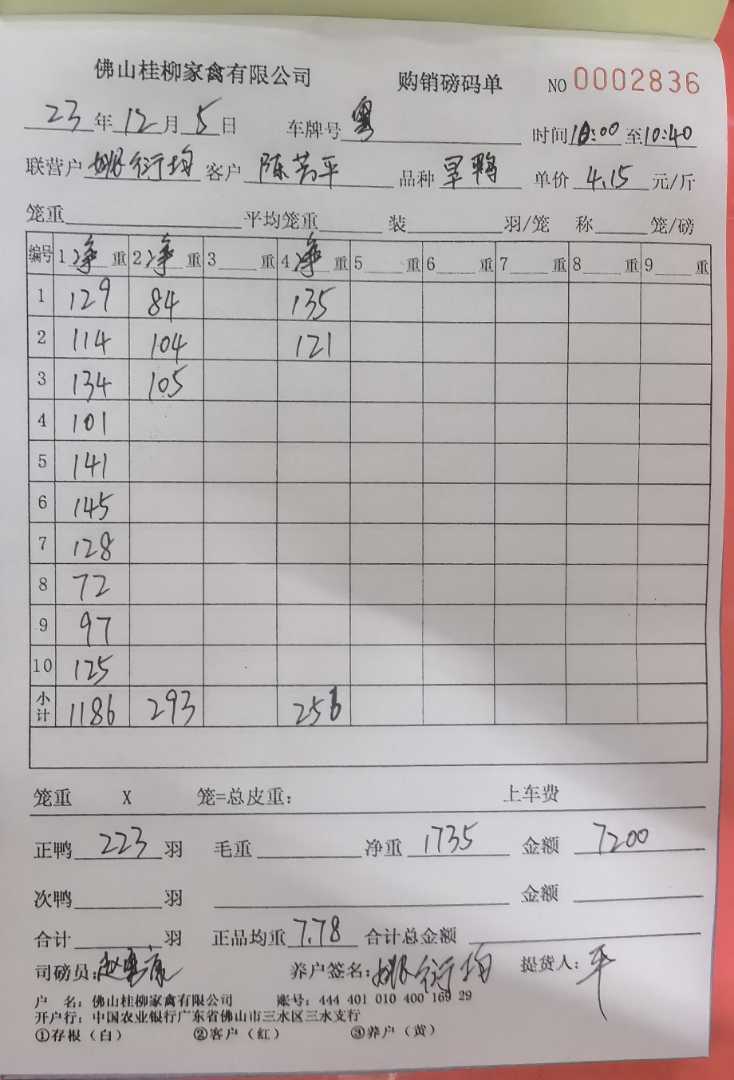 佛山桂柳家禽有限公司 购销磅码单 NO 0002836
23年12月5日 车牌号 粤 时间10:00至10:40
联营户 姚衍均 客户 陈芳平 品种 旱鸭 单价 4.15 元/斤
笼重 平均笼重 装 羽/笼 称 笼/磅
编号 1净重 2净重 3 重 4净重 5 重 6 重 7 重 8 重 9 重
1 129 84 135
2 114 104 121
3 134 105
4 101
5 141
6 145
7 128
8 72
9 97
10 125
小计 1186 293 256
笼重 X 笼=总皮重: 上车费
正鸭 223 羽 毛重 净重 1735 金额 7200
次鸭 羽 金额
合计 羽 正品均重 7.78 合计总金额
司磅员: 养户签名: 姚衍均 提货人: 平
户 名: 佛山桂柳家禽有限公司 账号: 444 401 010 400 169 29
开户行: 中国农业银行广东省佛山市三水区三水支行
①存根(白) ②客户(红) ③养户(黄)